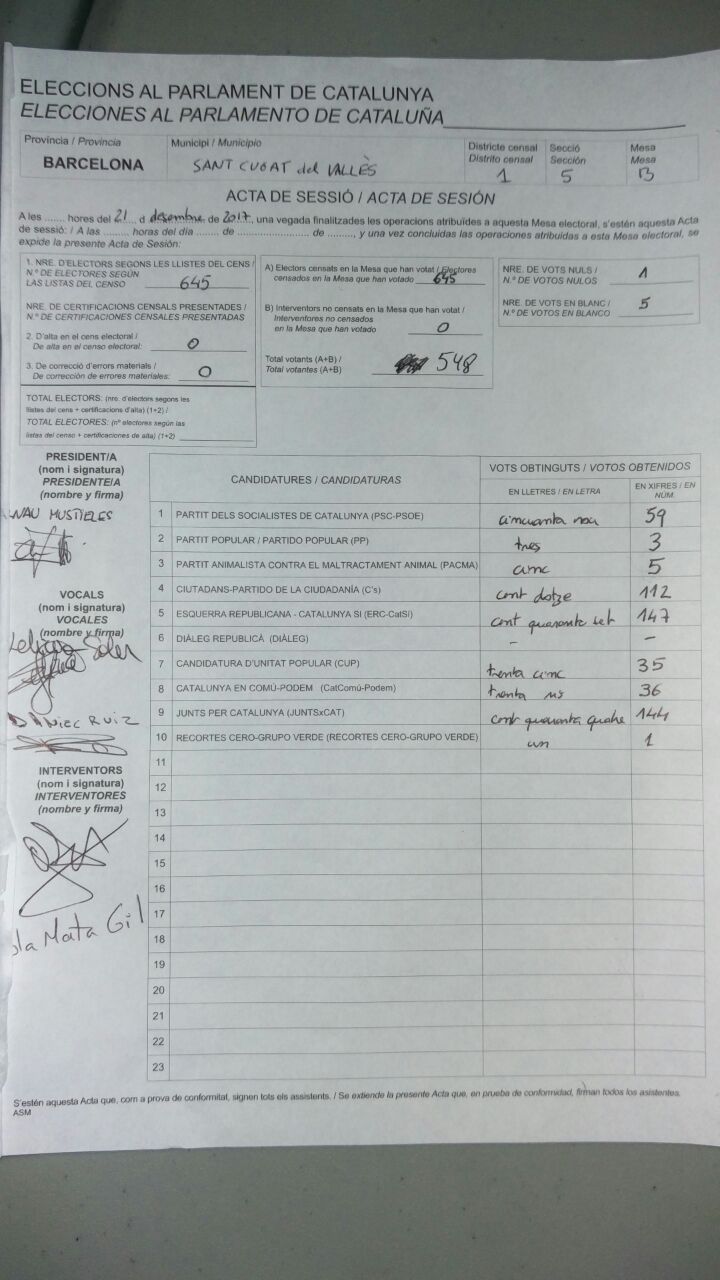 ELECCIONS AL PARLAMENT DE CATALUNYA
ELECCIONES AL PARLAMENTO DE CATALUÑA
Província / Provincia Municipi / Municipio Districte censal Secció Mesa
Distrito censal Sección Mesa
BARCELONA SANT CUGAT del VALLÈS 1 5 B
ACTA DE SESSIÓ / ACTA DE SESIÓN
A les ....... hores del 21 d desembre de 2017, una vegada finalitzades les operacions atribuïdes a aquesta Mesa electoral, s'estén aquesta Acta
de sessió: / A las ......... horas del día ....... de ........................ de ........., y una vez concluidas las operaciones atribuidas a esta Mesa electoral, se
expide la presente Acta de Sesión:
1. NRE. D'ELECTORS SEGONS LES LLISTES DEL CENS /
N.º DE ELECTORES SEGÚN
LAS LISTAS DEL CENSO 645
NRE. DE CERTIFICACIONS CENSALS PRESENTADES /
N.º DE CERTIFICACIONES CENSALES PRESENTADAS
2. D'alta en el cens electoral /
De alta en el censo electoral: 0
3. De correcció d'errors materials /
De corrección de errores materiales: 0
TOTAL ELECTORS: (nre. d'electors segons les
llistes del cens + certificacions d'alta) (1+2) /
TOTAL ELECTORES: (nº electores según las
listas del censo + certificaciones de alta) (1+2)
A) Electors censats en la Mesa que han votat / Electores
censados en la Mesa que han votado 645
B) Interventors no censats en la Mesa que han votat /
Interventores no censados
en la Mesa que han votado 0
Total votants (A+B) /
Total votantes (A+B) 548
NRE. DE VOTS NULS /
N.º DE VOTOS NULOS 1
NRE. DE VOTS EN BLANC /
N.º DE VOTOS EN BLANCO 5
PRESIDENT/A
(nom i signatura)
PRESIDENTE/A
(nombre y firma)
NAU MUSTIELES
VOCALS
(nom i signatura)
VOCALES
(nombre y firma)
Soler
DANIEL RUIZ
INTERVENTORS
(nom i signatura)
INTERVENTORES
(nombre y firma)
Mata Gil
CANDIDATURES / CANDIDATURAS VOTS OBTINGUTS / VOTOS OBTENIDOS
EN LLETRES / EN LETRA EN XIFRES / EN NÚM.
1 PARTIT DELS SOCIALISTES DE CATALUNYA (PSC-PSOE) cincuanta nou 59
2 PARTIT POPULAR / PARTIDO POPULAR (PP) tres 3
3 PARTIT ANIMALISTA CONTRA EL MALTRACTAMENT ANIMAL (PACMA) cinc 5
4 CIUTADANS-PARTIDO DE LA CIUDADANÍA (C's) cent dotze 112
5 ESQUERRA REPUBLICANA - CATALUNYA SÍ (ERC-CatSí) cent quaranta set 147
6 DIÀLEG REPUBLICÀ (DIÀLEG) - -
7 CANDIDATURA D'UNITAT POPULAR (CUP) trenta cinc 35
8 CATALUNYA EN COMÚ-PODEM (CatComú-Podem) trenta sis 36
9 JUNTS PER CATALUNYA (JUNTSxCAT) cent quaranta quatre 144
10 RECORTES CERO-GRUPO VERDE (RECORTES CERO-GRUPO VERDE) un 1
11
12
13
14
15
16
17
18
19
20
21
22
23
S'estén aquesta Acta que, com a prova de conformitat, signen tots els assistents. / Se extiende la presente Acta que, en prueba de conformidad, firman todos los asistentes.
ASM